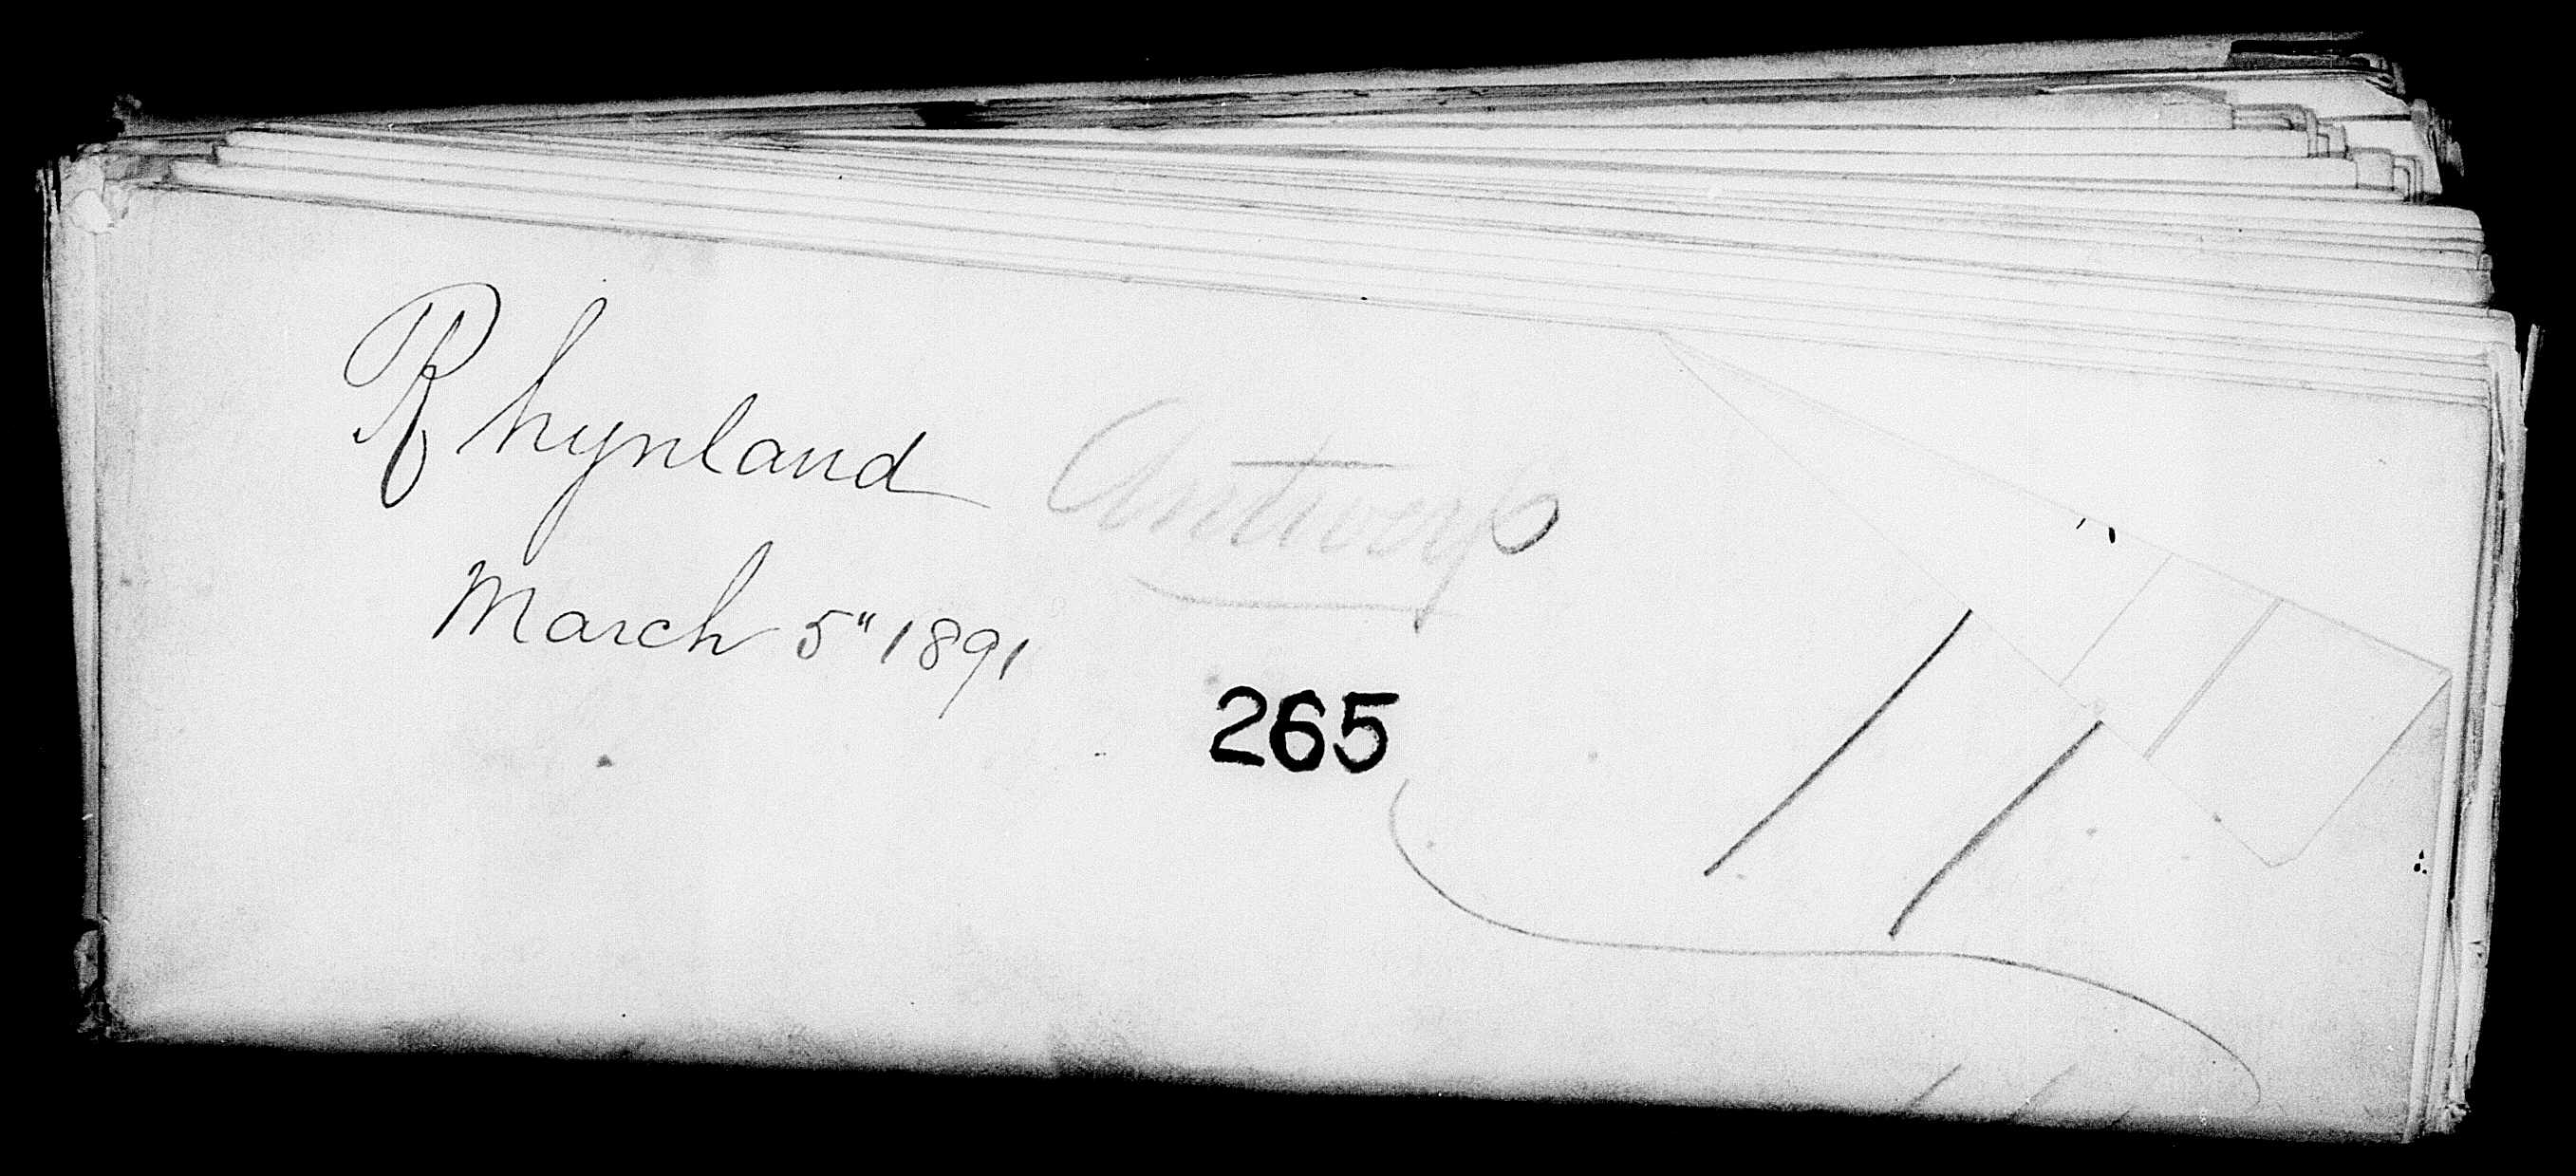 Rhynland Antwerp
March 5" 1891
265